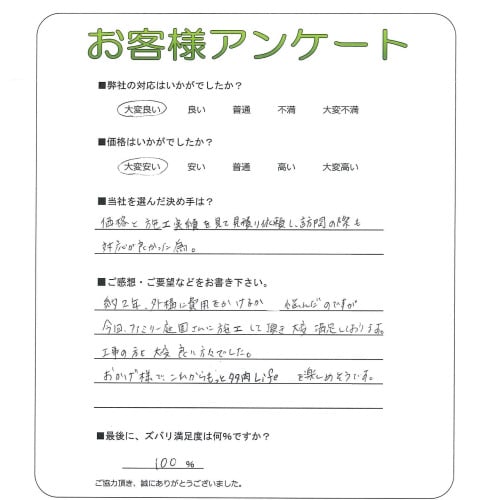 お客様アンケート
■弊社の対応はいかがでしたか？
大変良い 良い 普通 不満 大変不満
■価格はいかがでしたか？
大変安い 安い 普通 高い 大変高い
■当社を選んだ決め手は？
価格と施工実績を見て見積り依頼し、訪問の際も
対応が良かった為。
■ご感想・ご要望などをお書き下さい。
約2年、外構に費用をかけるか 悩んだのですが
今回、ファミリー庭園さんに施工して頂き大変満足しております。
工事の方も大変良い方たちでした。
おかげ様で、これからもっと多肉Lifeを楽しめそうです。
■最後に、ズバリ満足度は何％ですか？
100 %
ご協力頂き、誠にありがとうございました。